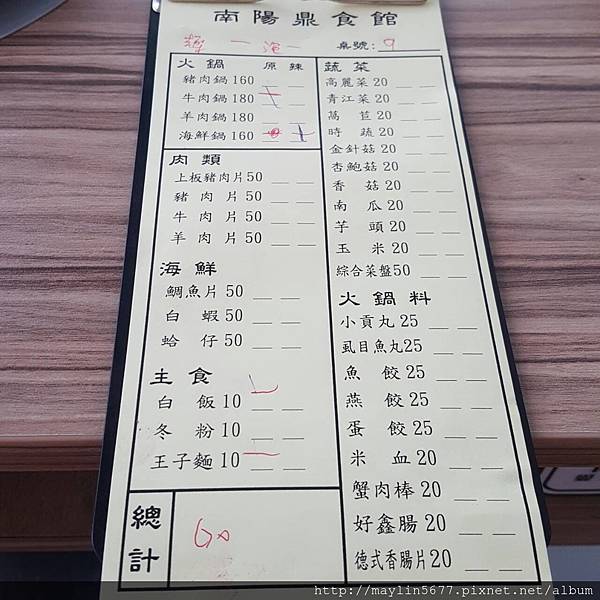 南陽鼎食館
桌號: 9
火鍋 原 辣
豬肉鍋 160
牛肉鍋 180
羊肉鍋 180
海鮮鍋 160
肉類
上板豬肉片 50
豬肉片 50
牛肉片 50
羊肉片 50
海鮮
鯛魚片 50
白蝦 50
蛤仔 50
主食
白飯 10
冬粉 10
王子麵 10
總計
蔬菜
高麗菜 20
青江菜 20
萵苣 20
時蔬 20
金針菇 20
杏鮑菇 20
香菇 20
南瓜 20
芋頭 20
玉米 20
綜合菜盤 50
火鍋料
小貢丸 25
虱目魚丸 25
魚餃 25
燕餃 25
蛋餃 25
米血 20
蟹肉棒 20
好鑫腸 20
德式香腸片 20
http://maylin5677.pixnet.net/album